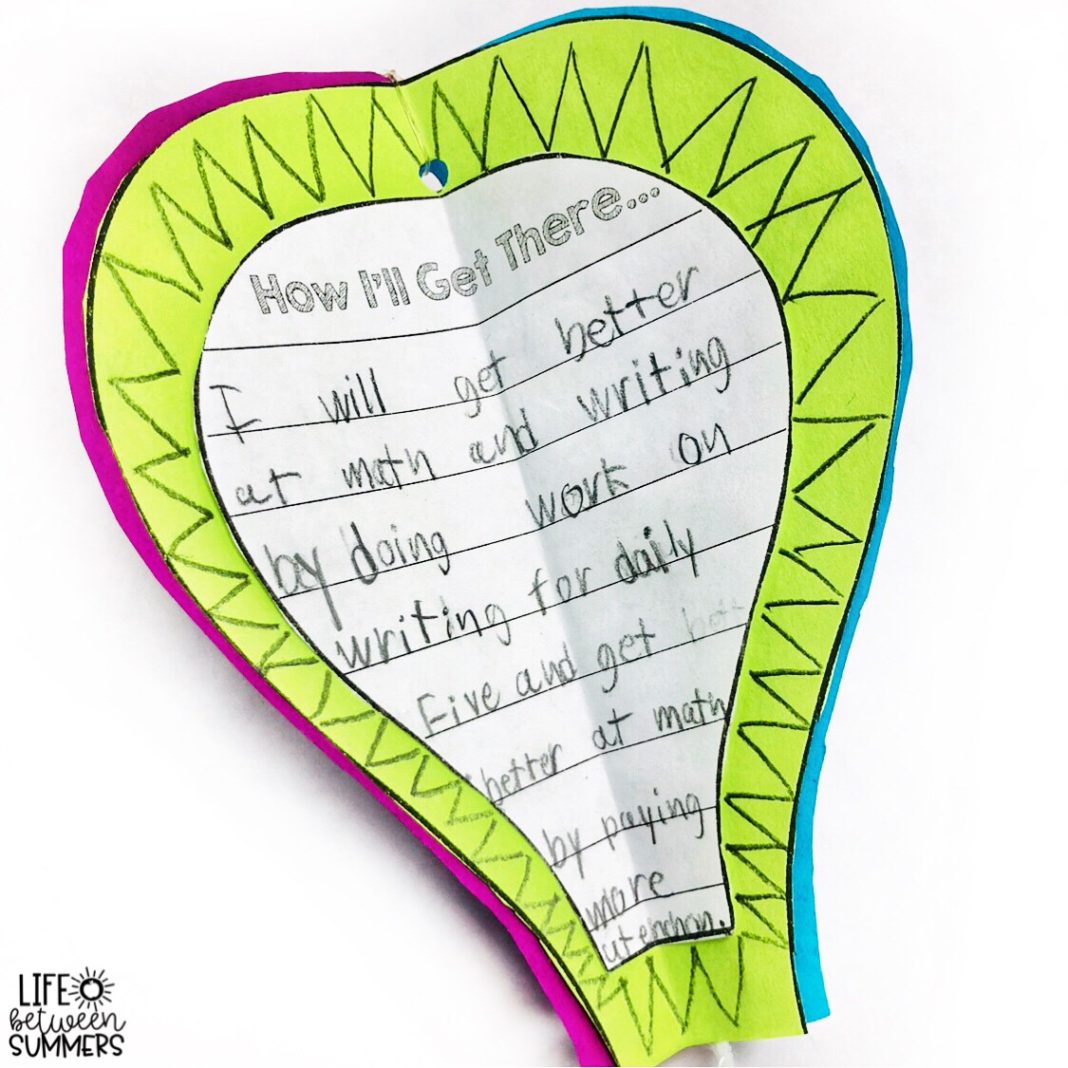 How I'll Get There...
I will get better
at math and writing
by doing work on
writing for daily
Five and get bett
better at math
by paying
more
LIFE
between
SUMMERS